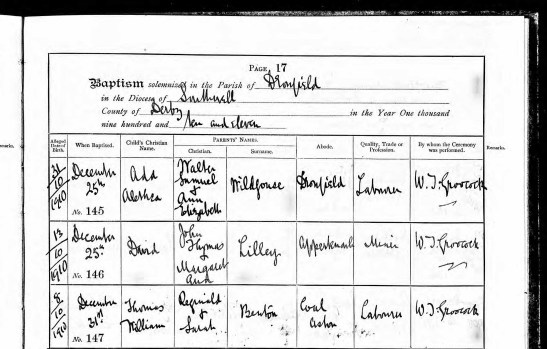 PAGE 17
Baptism solemnised in the Parish of Dronfield
in the Diocese of Southwell
County of Derby in the Year One thousand
nine hundred and ten and eleven
Alleged Date of Birth.
When Baptised.
Child's Christian Name.
PARENTS' NAMES.
Christian.
Surname.
Abode.
Quality, Trade or Profession.
By whom the Ceremony was performed.
Remarks.
31/10/1910
December 25th
No. 145
Ada Alethea
Walter Samuel & Ann Elizabeth
Wildgoose
Dronfield
Labourer
W.T. Groocock
13/10/1910
December 25th
No. 146
David
John Thomas & Margaret Ann
Lilley
Apperknowle
Miner
W.T. Groocock
8/10/1910
December 31st
No. 147
Thomas William
Reginald & Sarah
Benton
Coal Aston
Labourer
W.T. Groocock